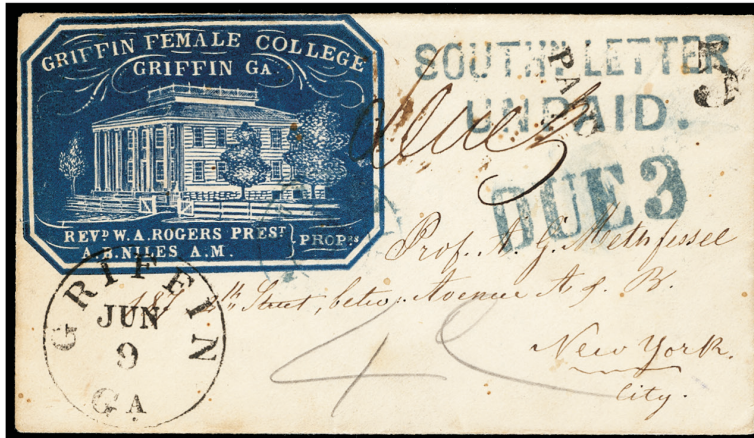 GRIFFIN FEMALE COLLEGE
GRIFFIN GA.
REVD W.A. ROGERS PREST
A.B. NILES A.M.
PROPRS
SOUTHN LETTER
UNPAID.
PAID
5
DUE 3
Due 3
Prof. A. G. Methfessel
187 Street, betw. Avenue A & B.
New York.
City.
GRIFFIN
JUN
9
GA